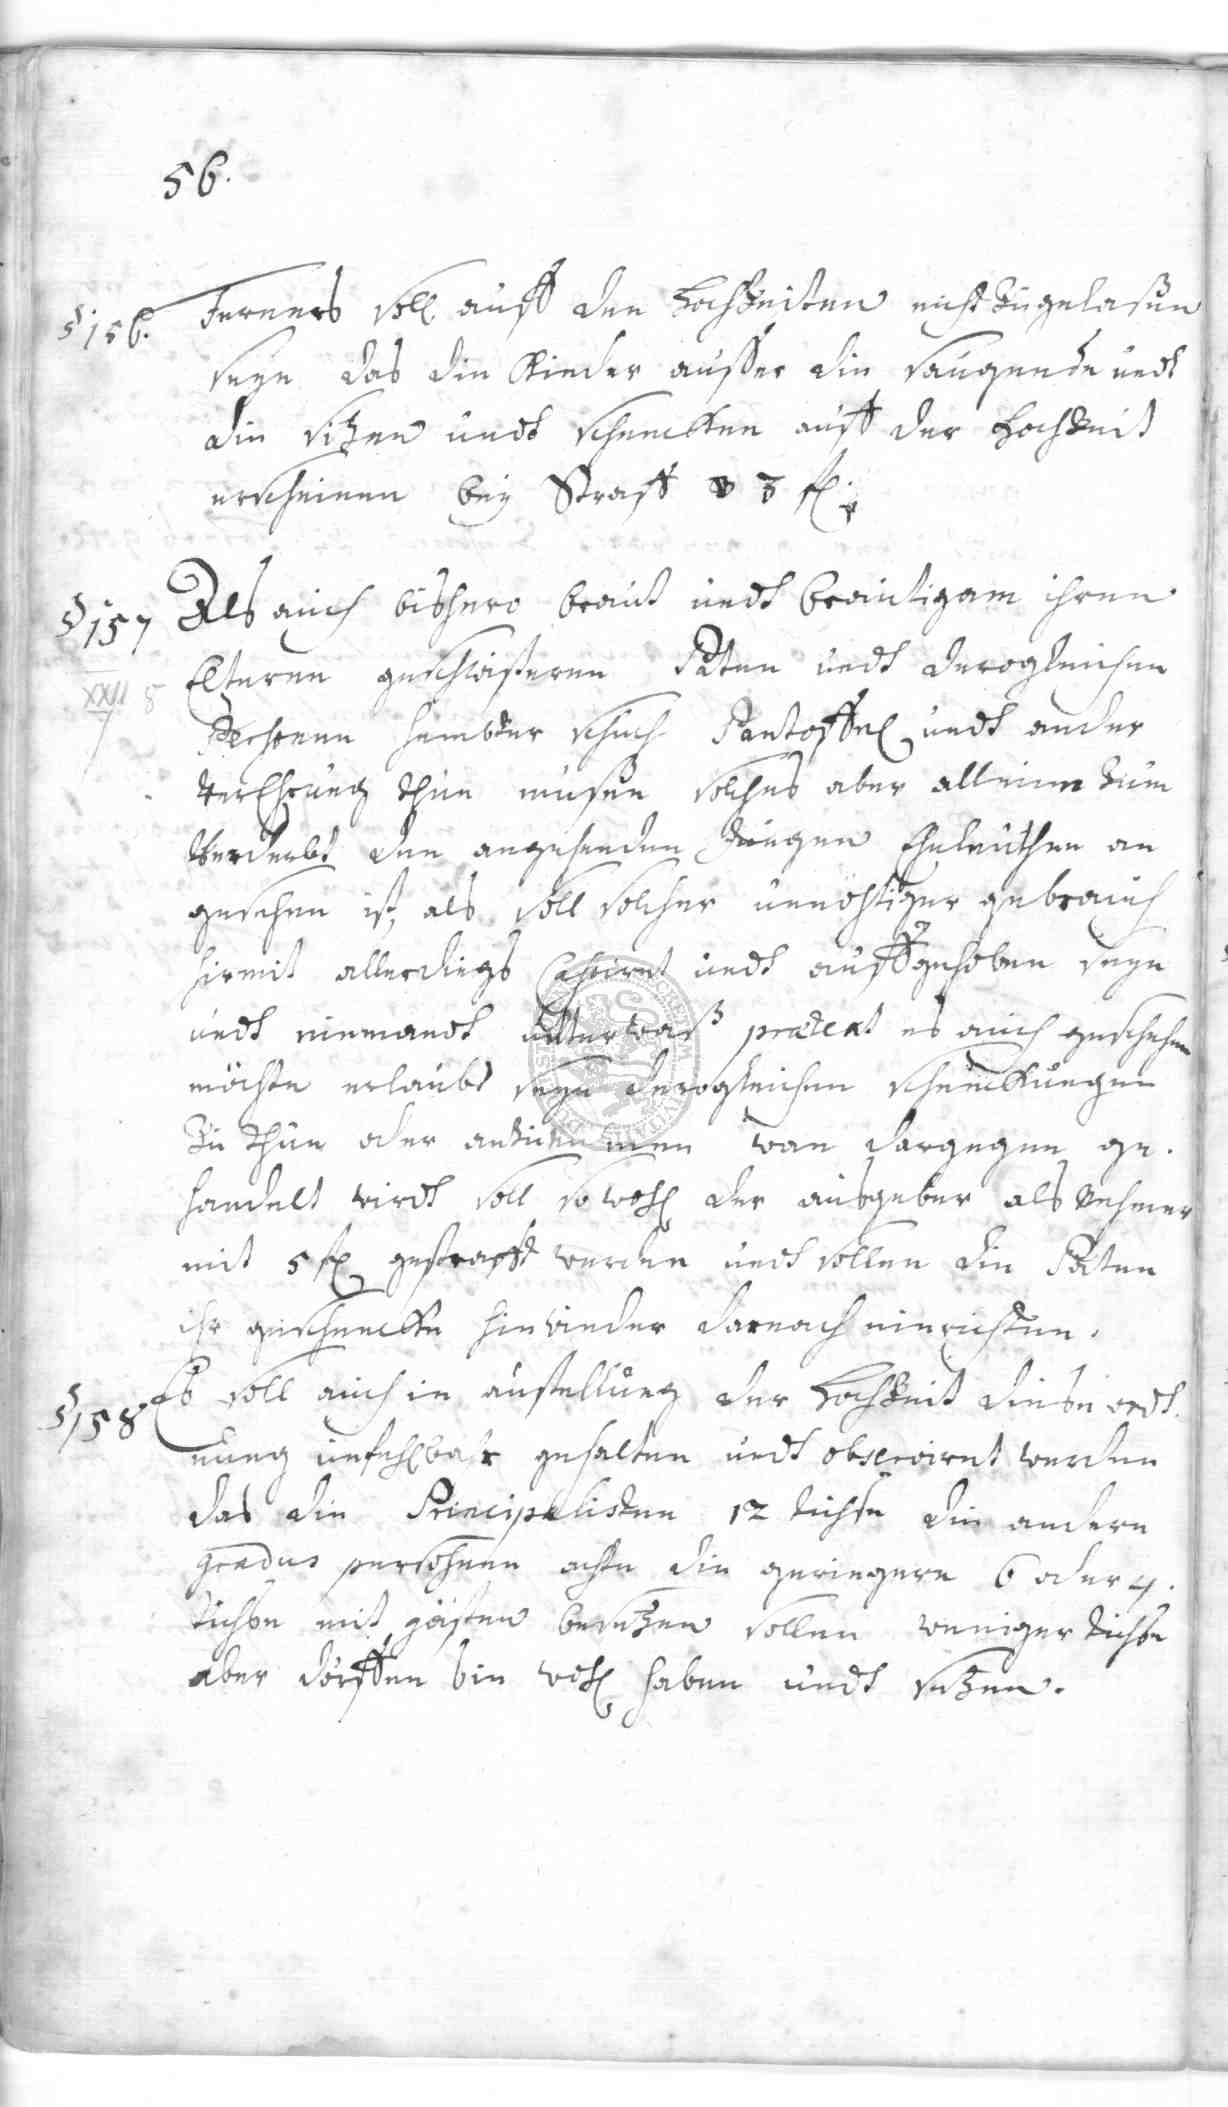 56.
§ 156. Ferners soll auff den Hochzeiten nicht zugelaßen
seyn das die Kinder ausser die saugende undt
die sitzen undt schencken auff der Hochzeit
erscheinen bey Straff 3 fl.
§ 157 Als auch bishero braut undt breutigam ihren
Elteren geschwisteren Páten undt derogleichen
Persohnen hembter schuch Pantoffel undt ander
VerEhrung thun müsen solches aber allein zum
Verderbt den angehenden Jungen Eheleuthen an
XXIII 8
gesehen ist, als soll solcher unnöhtiger gebrauch
hirmit allerdings Cassiret undt auffgehoben seyn
undt niemandt unter waß prætext es auch geschehen
möchte erlaubt seyn derogleichen schenckungen
zu thun oder anzunemen wan dargegen ge.
handelt wirdt soll so wohl der ausgeber als Nehmer
mit 5 fl gestrafft werden undt sollen die Páten
ihr geschencke hinwieder darnach einrichten.
§ 158 Es soll auch in anstellung der Hochzeit diese ordt.
nung unfehlbar gehalten undt observiret werden
das die Principalisten 12 tische die andern
gradus persohnen achte die geringere 6 oder 4.
tische mit gästen besetzen sollen weniger tische
aber dörffen sie wohl haben undt setzen.